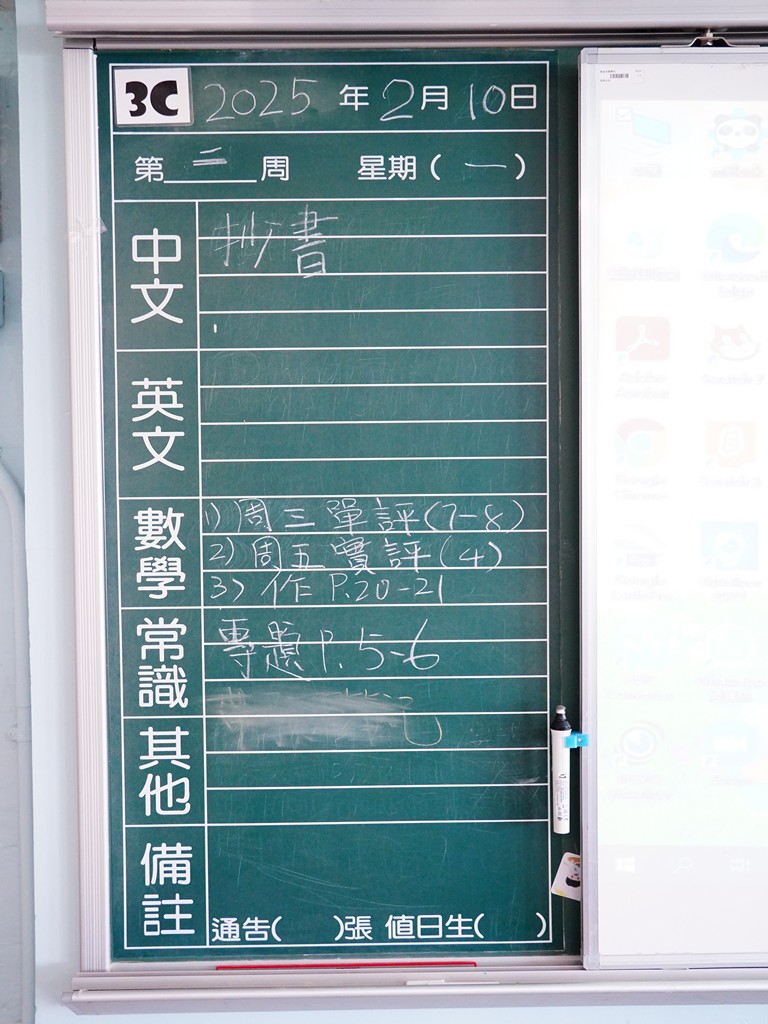 3C 2025年2月10日
第二周 星期(一)
中文 抄書
英文
數學 1) 周三單評(7-8)
2) 周五實評(4)
3) 作 P.20-21
常識 專題 P.5-6
其他
備註
通告( )張 值日生( )